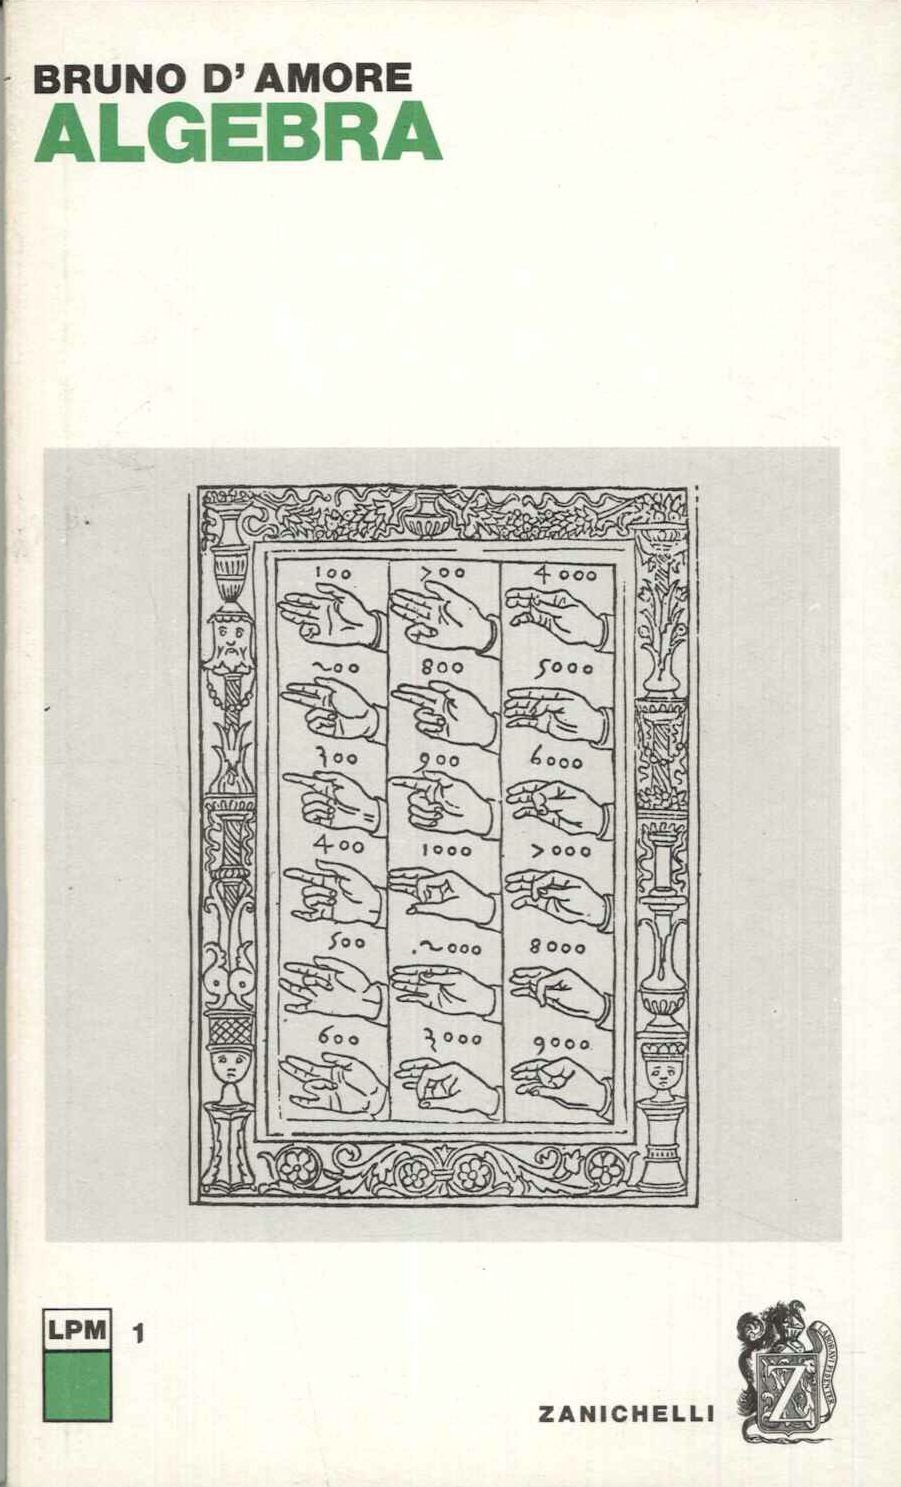 BRUNO D' AMORE
ALGEBRA
100 700 4000
200 800 5000
300 900 6000
400 1000 7000
500 2000 8000
600 3000 9000
LPM 1
ZANICHELLI
Z